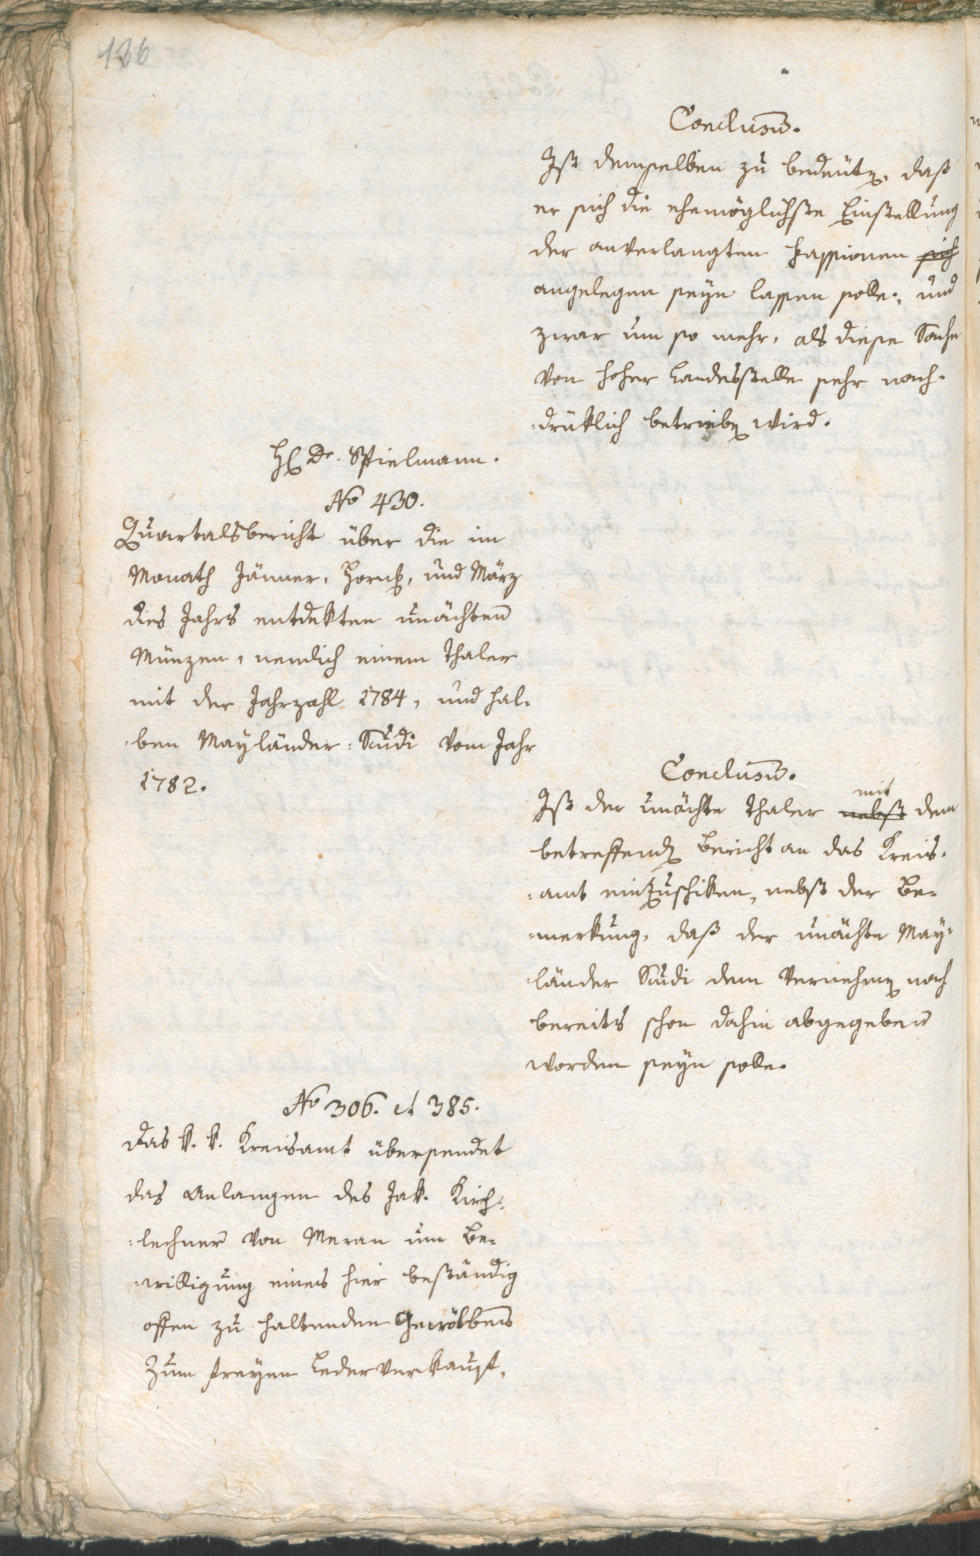 136
Conclusũ.
Ist demselben zu bedeutẽ, daß
er sich die ehemöglichste Einstellung
der anverlangten Fassionen sich
angelegen seyn lassen solle, und
zwar um so mehr, als diese Sache
von hoher Landesstelle sehr nach-
drüklich betriebẽ wird.
H. Dr. Spielmann.
No 430.
Quartalsbericht über die im
Monath Jänner, Hornũg, und März
dies Jahrs entdekten unächten
Münzen, nemlich einem Thaler
mit der Jahrzahl 1784, und hal-
ben Mayländer-Scudi vom Jahr
1782.
Conclusũ.
Ist der unächte Thaler nebst mit dem
betreffendẽ Bericht an das Kreis-
amt einzuschiken, nebst der Be-
merkung, daß der unächte May-
länder Scudi dem Vernehmẽ nach
bereits schon dahin abgegeben
worden seyn solle.
No 306. et 385.
Das k. k. Kreisamt übersendet
das Anlangen des Jak. Kirch-
lechner von Meran um Be-
willigung eines hier beständig
offen zu haltenden Gewölbens
zum freyen Lederverkauf.